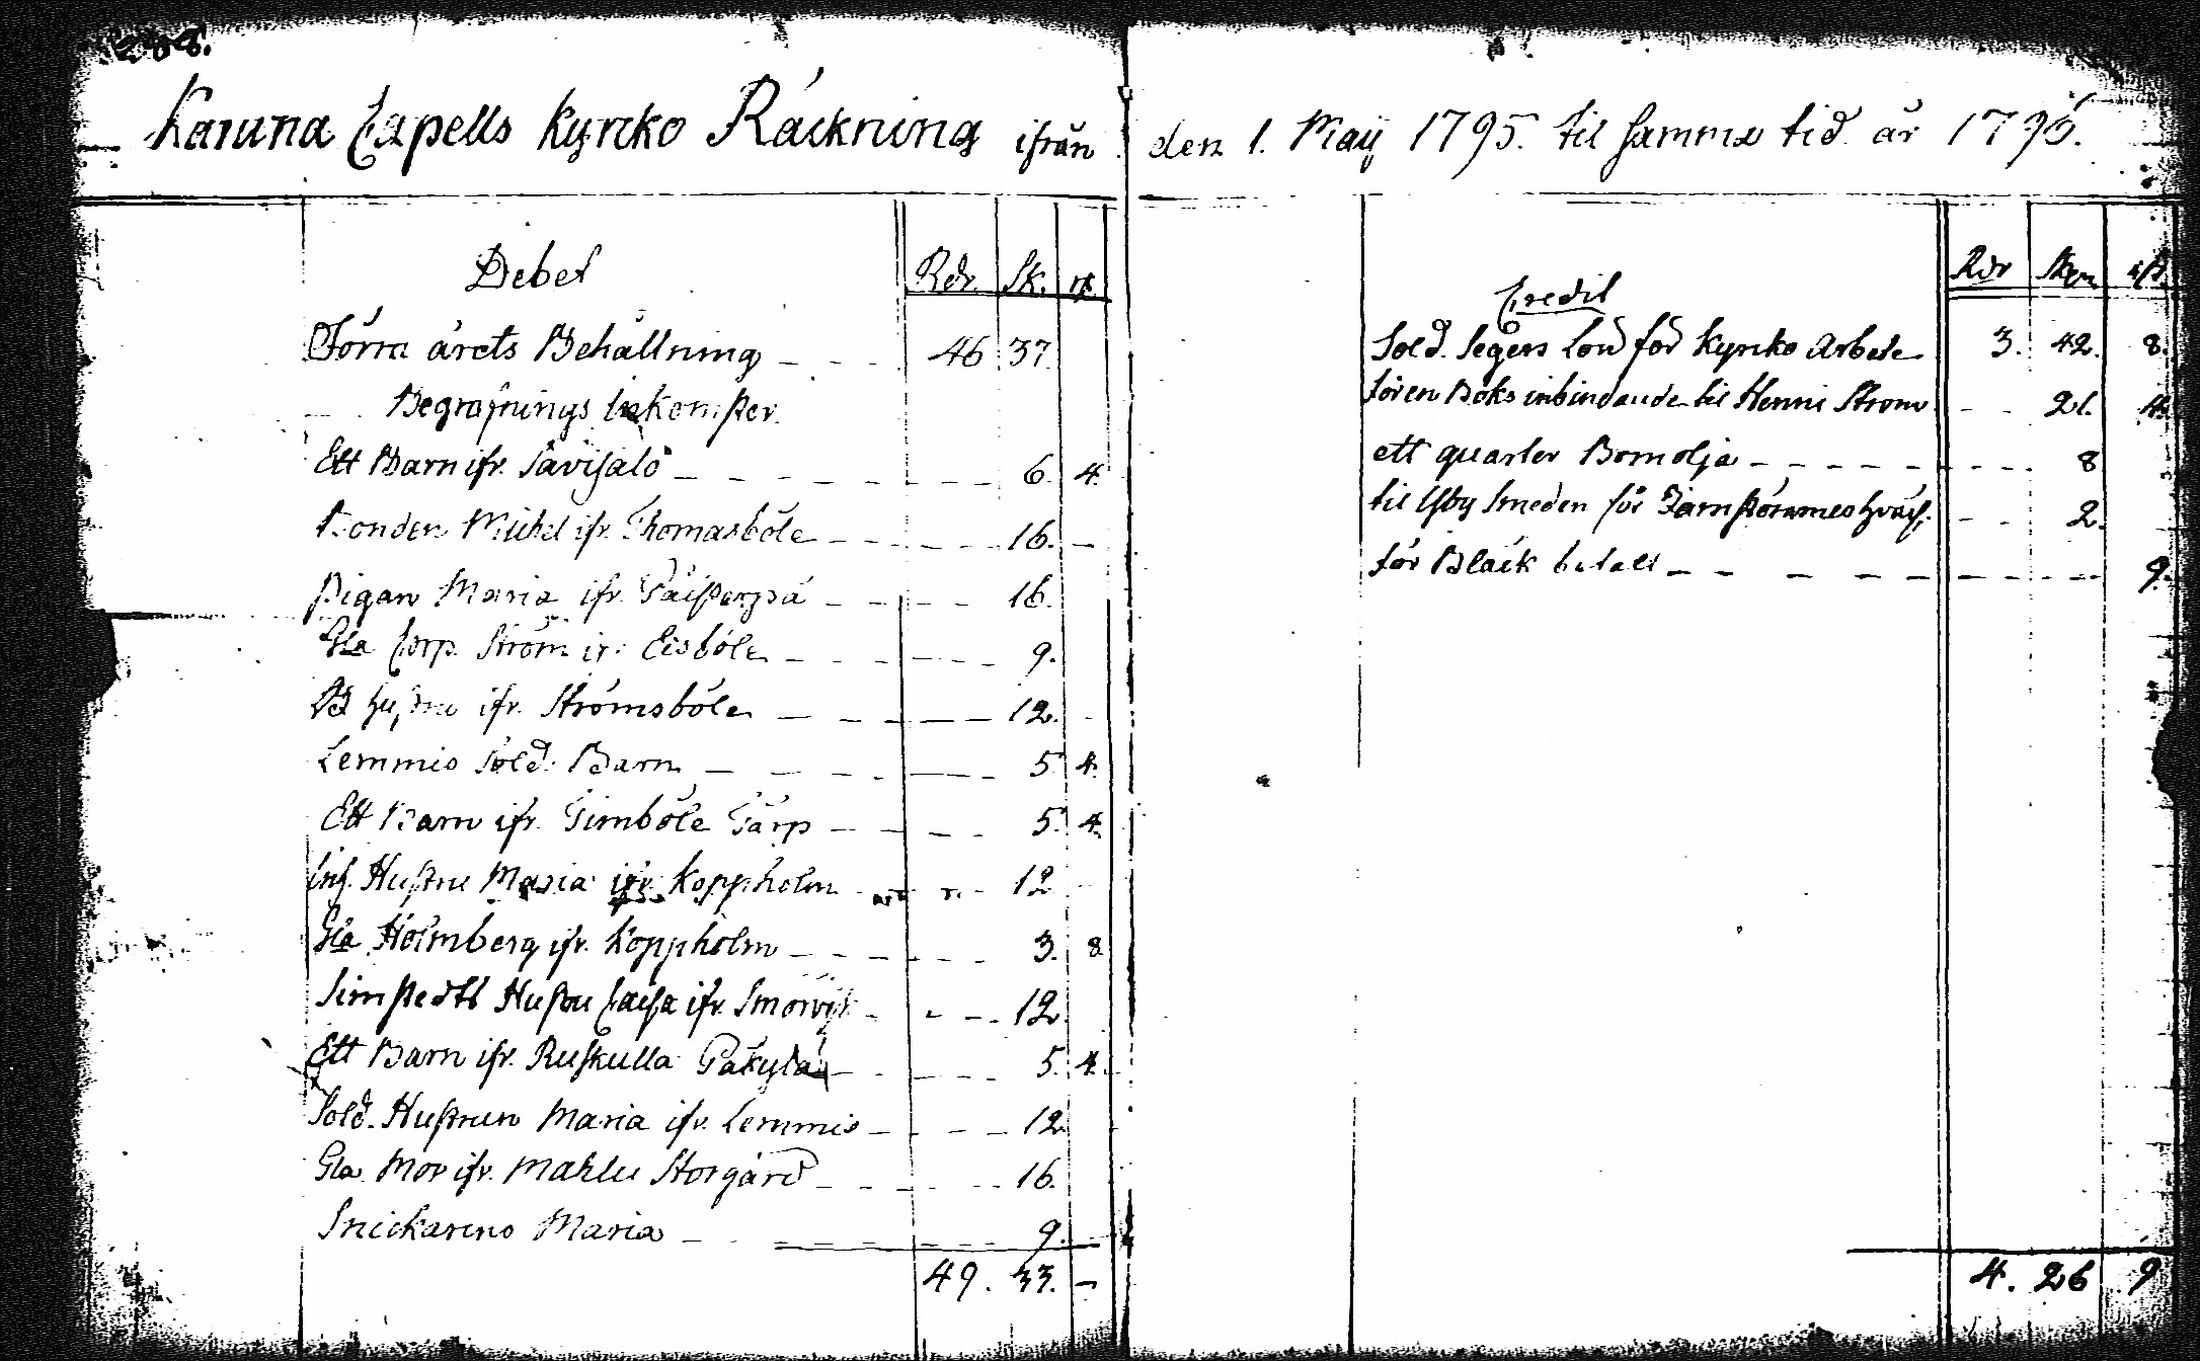 Karuna Capells Kyrcko Räckning ifrån den 1. Maij 1795. til samma tid år 1796.
Debet Rdr. Sk. rst.
Förra årets Behållning 46 37.
Begrafnings Inkomster.
Ett Barn ifr. Savisalo 6. 4.
Bonden Michel ifr. Thomasböle 16. -
Pigan Maria ifr. 16.
Gla Corp. Ström ifr. Eisböle 9.
Hustru ifr. Strömsböle 12.
Lemmis Sold. Barn 5 4.
Ett Barn ifr. Gimböle Tårp 5. 4.
Inh. Hustru Maria ifr. Koppholm 12
Gla Holmberg ifr. Koppholm 3. 8
Simstedts Hustru Caisa ifr. 12.
Ett Barn ifr. Ruskulla Påkylä 5. 4.
Sold. Hustrun Maria ifr. Lemmis 12.
Gla Mor ifr. Mahlu Storgård 16.
Snickarens Maria 9.
49. 33. -
Credit Rdr Sk rst.
Sold. Segers lön för Kyrko Arbete 3. 42. 8.
för en Boks inbindande til Henric Ström 21. 4.
ett quarter Bomolja 8
til Smeden för 2.
för Bläck betalt 9.
4. 26 9